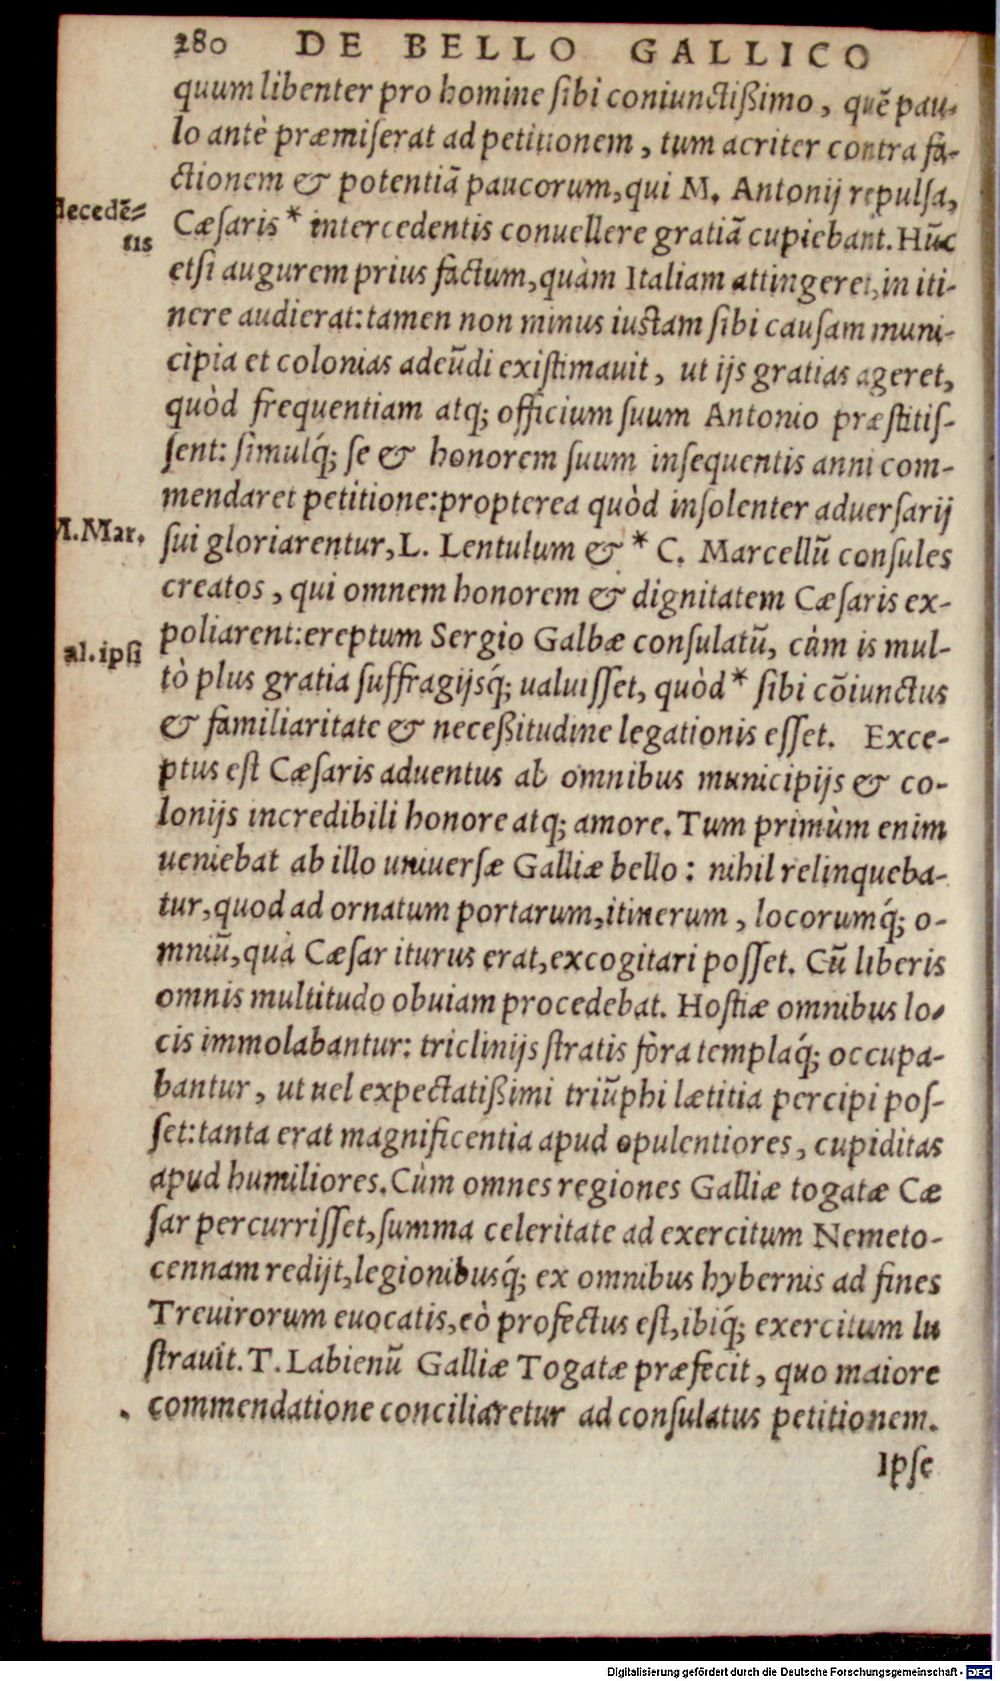 280 DE BELLO GALLICO
quum libenter pro homine ſibi coniunctißimo, quẽ pau-
lo antè præmiſerat ad petitionem, tum acriter contra fa-
ctionem & potentiã paucorum, qui M. Antonij repulſa,
decedẽ=
tis
Cæſaris * intercedentis conuellere gratiã cupiebant. Hũc
etſi augurem prius factum, quàm Italiam attingeret, in iti-
nere audierat: tamen non minus iustam ſibi cauſam muni-
cipia et colonias adeũdi exiſtimauit, ut ijs gratias ageret,
quòd frequentiam atq; officium ſuum Antonio præſtitiſ-
ſent: ſimulq́; ſe & honorem ſuum inſequentis anni com-
mendaret petitione: propterea quòd inſolenter aduerſarij
M. Mar.
ſui gloriarentur, L. Lentulum & * C. Marcellũ conſules
creatos, qui omnem honorem & dignitatem Cæſaris ex-
poliarent: ereptum Sergio Galbæ conſulatũ, cùm is mul-
al. ipſi
tò plus gratia ſuffragijsq́; ualuiſſet, quòd * ſibi cõiunctus
& familiaritate & neceßitudine legationis eſſet. Exce-
ptus eſt Cæſaris aduentus ab omnibus municipijs & co-
lonijs incredibili honore atq; amore. Tum primùm enim
ueniebat ab illo uniuerſæ Galliæ bello: nihil relinqueba-
tur, quod ad ornatum portarum, itinerum, locorumq́; o-
mniũ, quà Cæſar iturus erat, excogitari poſſet. Cũ liberis
omnis multitudo obuiam procedebat. Hoſtiæ omnibus lo-
cis immolabantur: triclinijs ſtratis fòra templaq́; occupa-
bantur, ut uel expectatißimi triũphi lætitia percipi poſ-
ſet: tanta erat magnificentia apud opulentiores, cupiditas
apud humiliores. Cùm omnes regiones Galliæ togatæ Cæ
ſar percurriſſet, ſumma celeritate ad exercitum Nemeto-
cennam redijt, legionibusq́; ex omnibus hybernis ad fines
Treuirorum euocatis, eò profectus eſt, ibiq́; exercitum lu
ſtrauit. T. Labienũ Galliæ Togatæ præfecit, quo maiore
commendatione conciliaretur ad conſulatus petitionem.
Ipſe
Digitalisierung gefördert durch die Deutsche Forschungsgemeinschaft - DFG